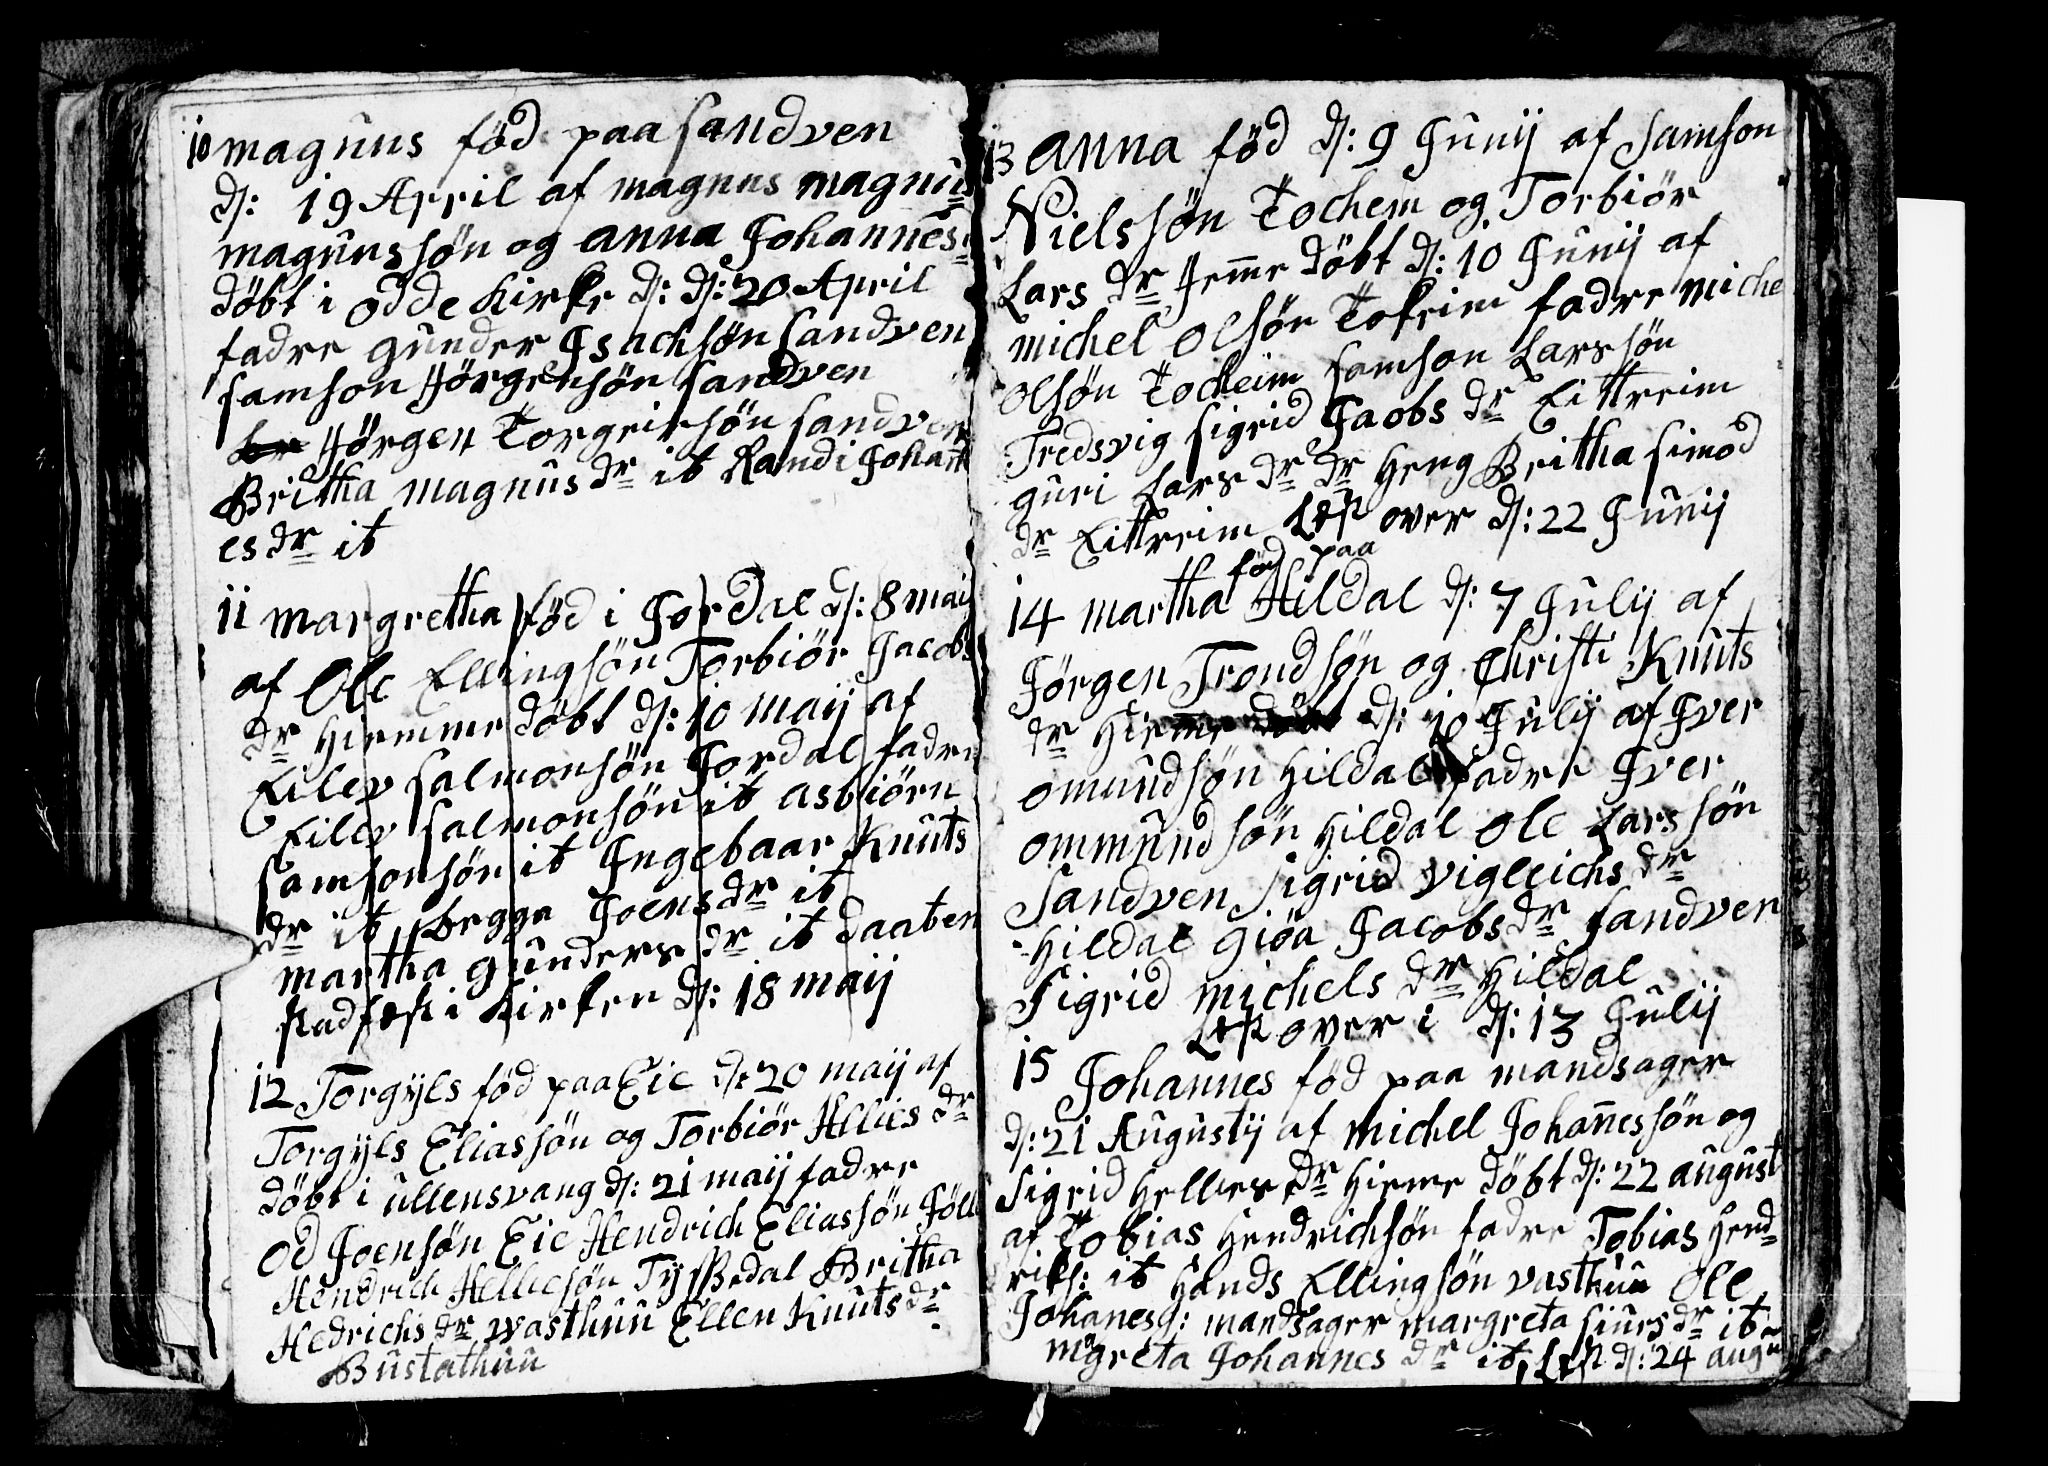 10 magnus föd paa sandven
ds: 19 April af magnus magnus
magnussön og anna Johannes
döbt i odde Kirke ds: ds: 20 April
fadre gunder Isachsön sandven
samson Jörgensön sandven
Jörgen Torgeirsön sandven
Britha magnus dr it Randi Johan
es dr it
11 margretha föd i Jordal ds: 8 maij
af Ole Ellingsön Torbiör Jacobs
dr hiemme döbt ds: 10 maij af
Eilev salmonsön Jordal fadre
Eilev salmonsön it asbiörn
samsonsön it Ingebaar Knuts
dr it begge Joens dr it
martha gunders dr it daaben
stadfest i Kirken ds: 18 maij
12 Torgÿls föd paa Eie ds: 20 maij af
Torgÿls Eliassön og Torbiör Hellies dr
döbt i ullensvang ds: 21 maij fadre
Od Joensön Eie Hendrich Eliassön Jöll
Hendrich Helliesön Tÿssedal Britha
Hedrichs dr vasthuu Ellen Knuts dr
Bustathuu
13 anna föd ds: 9 Junij af Samson
Nielssön Tochem og Torbiör
Lars dr Hemme döbt ds: 10 Junij af
michel olsön Tokeim fadre miche
olsön Tocheim samson Larssön
Tredsvig sigrid Jaobs dr Eittreim
guri Lars dr dr Heng Britha simod
dr Eittreim Lest over ds: 22 Junij
föd paa
14 martha Hildal ds: 7 Julij af
Jörgen Trondsön og Christi Knuts
dr hieme döbt ds: 10 Julij af Iver
omundsön Hildal fadre Iver
ommundsön Hildal Ole Larssön
Sandven Sigrid vigleichs dr
Hildal giöa Jacobs dr sandven
Sigrid michels dr Hildal
Lest over i ds: 13 Julij
15 Johannes föd paa mandsager
ds: 21 Augustij af michel Johannessön og
sigrid Hellies dr hieme döbt ds: 22 august
af Tobias Hendrichsön fadre Tobias Hend
riks: it Hands Ellingsön vasthuu Ole
Johanes: mandsager margreta siurs dr it
mgreta Johannes dr it, Lest ds: 24 aug